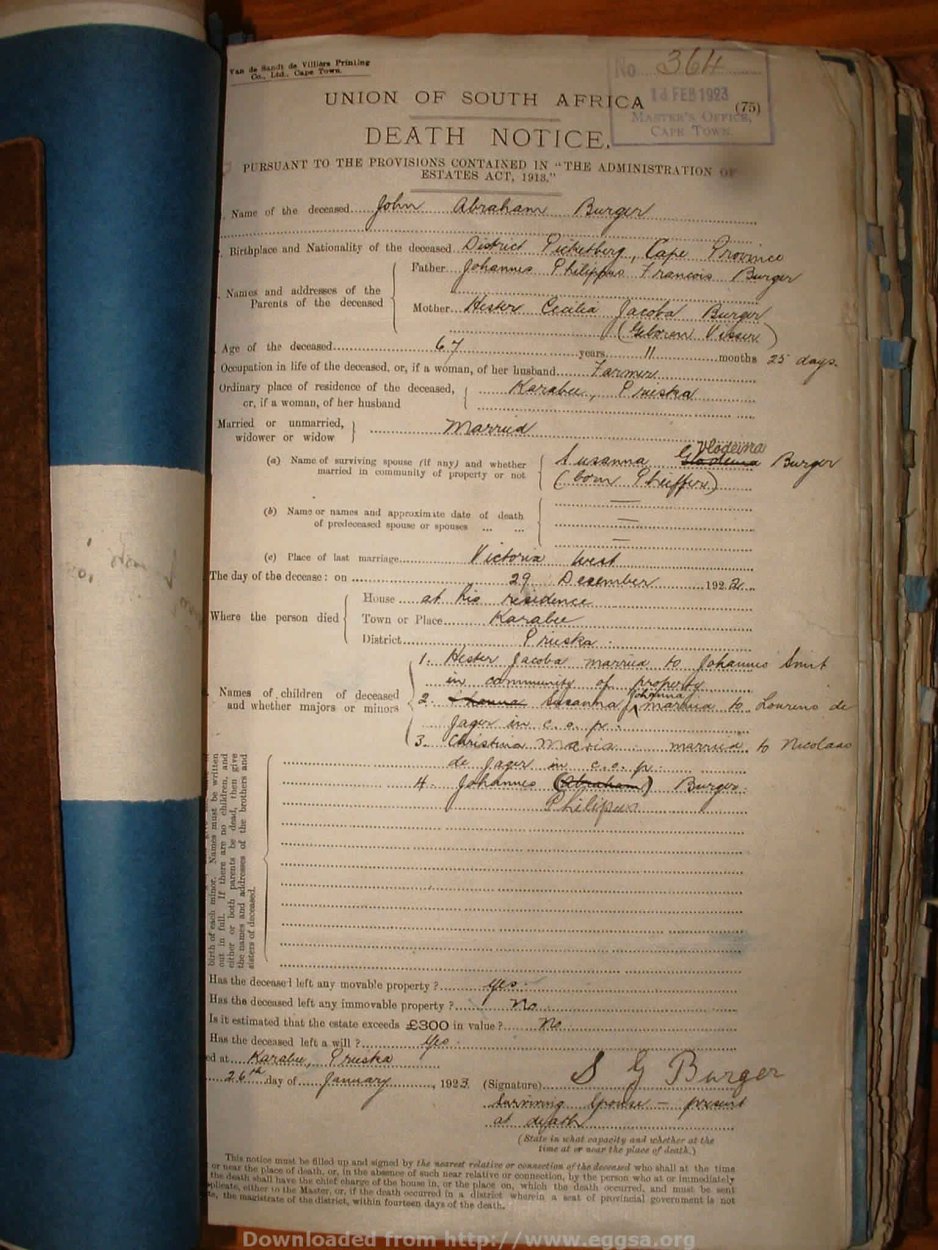 Van de Sandt de Villiers Printing
Co., Ltd., Cape Town.
No. 364
13 FEB 1923
MASTER'S OFFICE,
CAPE TOWN.
(75)
UNION OF SOUTH AFRICA
DEATH NOTICE.
PURSUANT TO THE PROVISIONS CONTAINED IN "THE ADMINISTRATION OF
ESTATES ACT, 1913."
Name of the deceased John Abraham Burger
Birthplace and Nationality of the deceased District Picketberg, Cape Province
Names and addresses of the Parents of the deceased
Father Johannes Philippus Francois Burger
Mother Hester Cecilia Jacoba Burger
(Geboren Visser)
Age of the deceased 67 years 11 months 25 days.
Occupation in life of the deceased, or, if a woman, of her husband Farmer
Ordinary place of residence of the deceased, Karabee, Prieska
or, if a woman, of her husband
Married or unmarried, Married
widower or widow
(a) Name of surviving spouse (if any) and whether Susanna Burger
married in community of property or not (born Pheiffer)
(b) Name or names and approximate date of death
of predeceased spouse or spouses ... ...
(c) Place of last marriage Victoria West
The day of the decease: on 29 Desember 1922
Where the person died
House at his residence
Town or Place Karabee
District Prieska.
Names of children of deceased
and whether majors or minors
1. Hester Jacoba married to Johannes Smit
in community of property
2. Susanna Johanna married to Lourens de
Jager in c. o. pr.
3. Christina Maria married to Nicolaas
de Jager in c.o. pr.
4. Johannes (Abraham) Burger
Philipus
birth of each minor. Names must be written
out in full. If there are no children, and
either or both parents be dead, then give
the names and addresses of the brothers and
sisters of deceased.
Has the deceased left any movable property ? yes.
Has the deceased left any immovable property ? No
Is it estimated that the estate exceeds £300 in value ? No
Has the deceased left a will ? Yes
ed at Karabee, Prieska
26th day of January, 1923. (Signature) S G Burger
Surviving Spouse – present
at death
(State in what capacity and whether at the
time at or near the place of death.)
This notice must be filled up and signed by the nearest relative or connection of the deceased who shall at the time
or near the place of death, or, in the absence of such near relative or connection, by the person who at or immediately
the death shall have the chief charge of the house in, or the place on, which the death occurred, and must be sent
uplicate, either to the Master, or, if the death occurred in a district wherein a seat of provincial government is not
te, the magistrate of the district, within fourteen days of the death.
Downloaded from http://www.eggsa.org